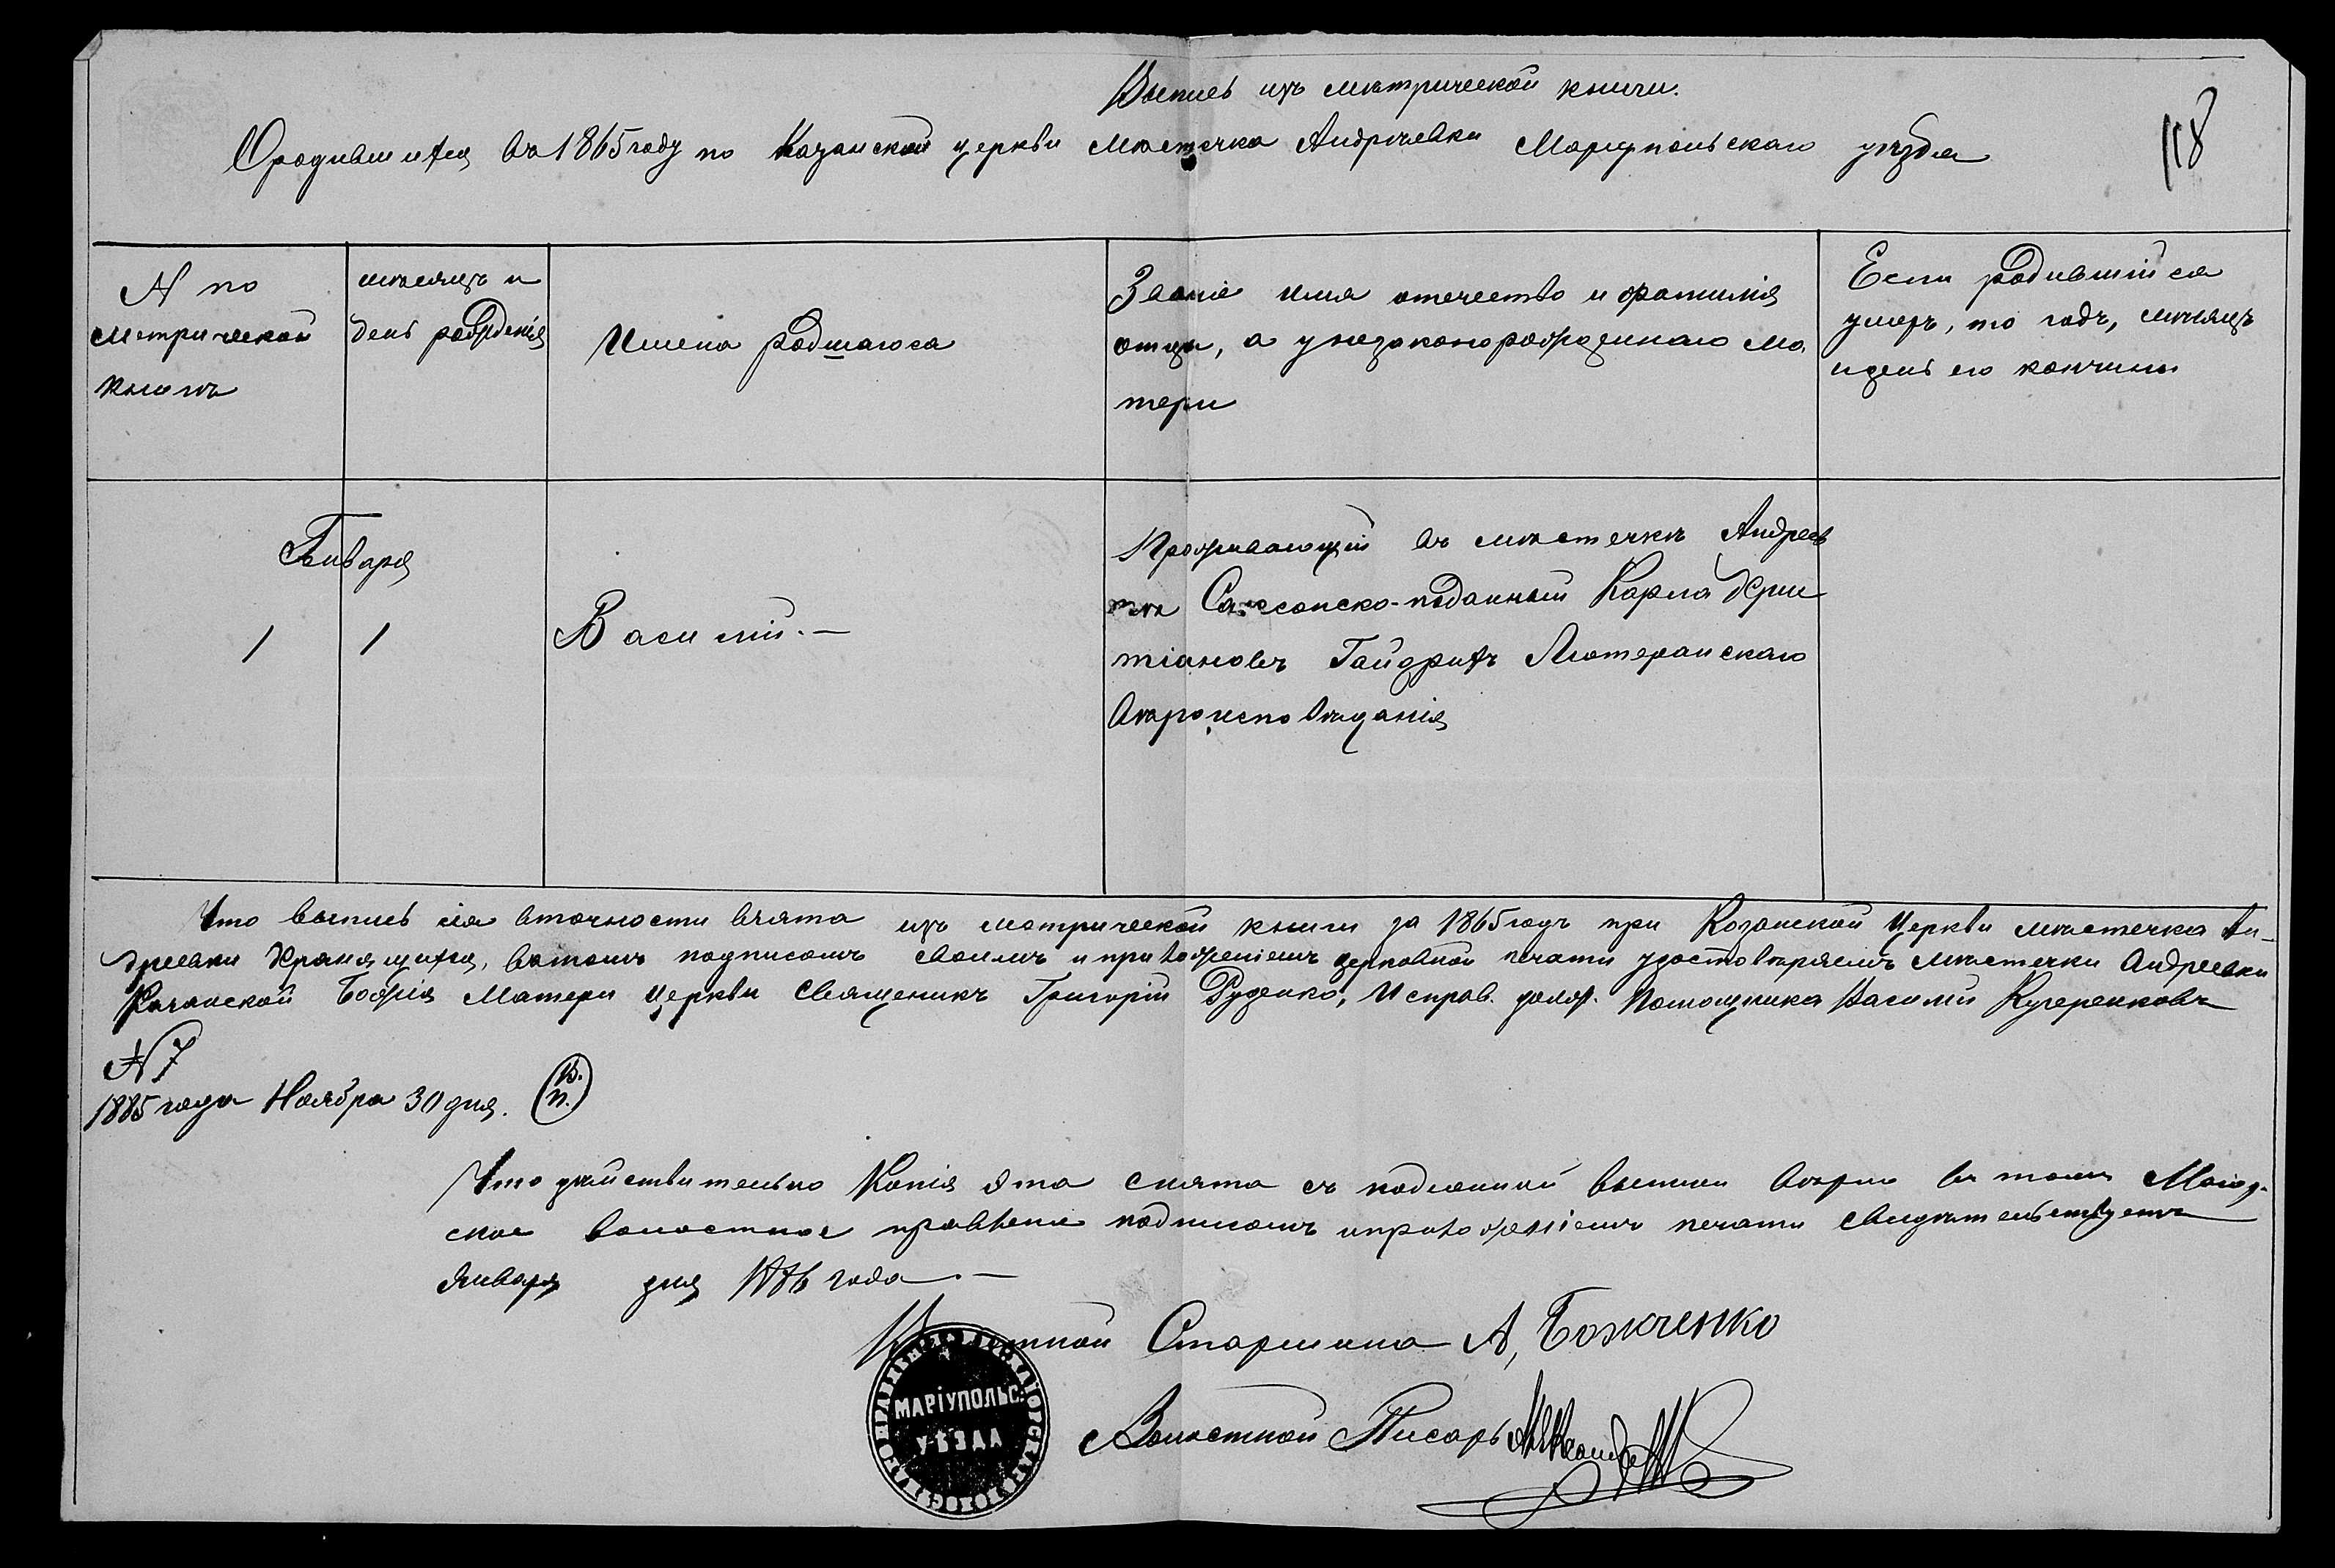 Выпись изъ метрической книги.
О родившихся въ 1865 году по Казанской церкви мѣстечка Андреевки Маріупольскаго уѣзда
118
№ по
метрической
книгѣ
мѣсяцъ и
день рожденія
Имена родшагося
Званіе имя отечество и фамилія
отца, а у незаконорожденнаго ма
тери
Если родившійся
умеръ, то годъ, мѣсяцъ
и день его кончины
Января
1 1
Василій.—
Проживающій въ мѣстечкѣ Андреев
Саксонско-подданный Карла Хри
тіановъ Гайдрихъ Лютеранскаго
вѣроисповѣданія
Что выпись сія вточности взята изъ метрической книги за 1865 годъ при Казанской Церкви мѣстечка Ан-
дреевки Хранящихся, вътомъ подписомъ своимъ и приложеніемъ церковной печати удостовѣряемъ мѣстечки Андреевки
Казанской Божія Матери Церкви Священикъ Григорій Руденко, Исправ. долж. Помощника Василий Кучеренковъ
№ 7
1885 года Ноября 30 дня. (В. П.)
Что дѣйствительно Копія эта снята съ подленной выписи вѣрно въ томъ
ское волостное правленіе подписомъ и приложеніемъ печати свидѣтельствуетъ
Января дня 1886 года.—
Старшина А, Божченко
МАРІУПОЛЬС.
УѢЗДА
Волостной Писарь